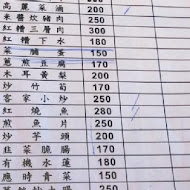 高麗菜滷 200
來醬炊豬肉 250
紅糟三層肉 300
紅糟下水 180
菜脯蛋 150
蔥煎豆腐 170
木耳黃梨 200
炒竹筍 170
客家小炒 250
紅燒魚 280
煎魚片 250
炒芋頭 200
韭菜脆腸 170
有機水蓮 180
應時青菜 150